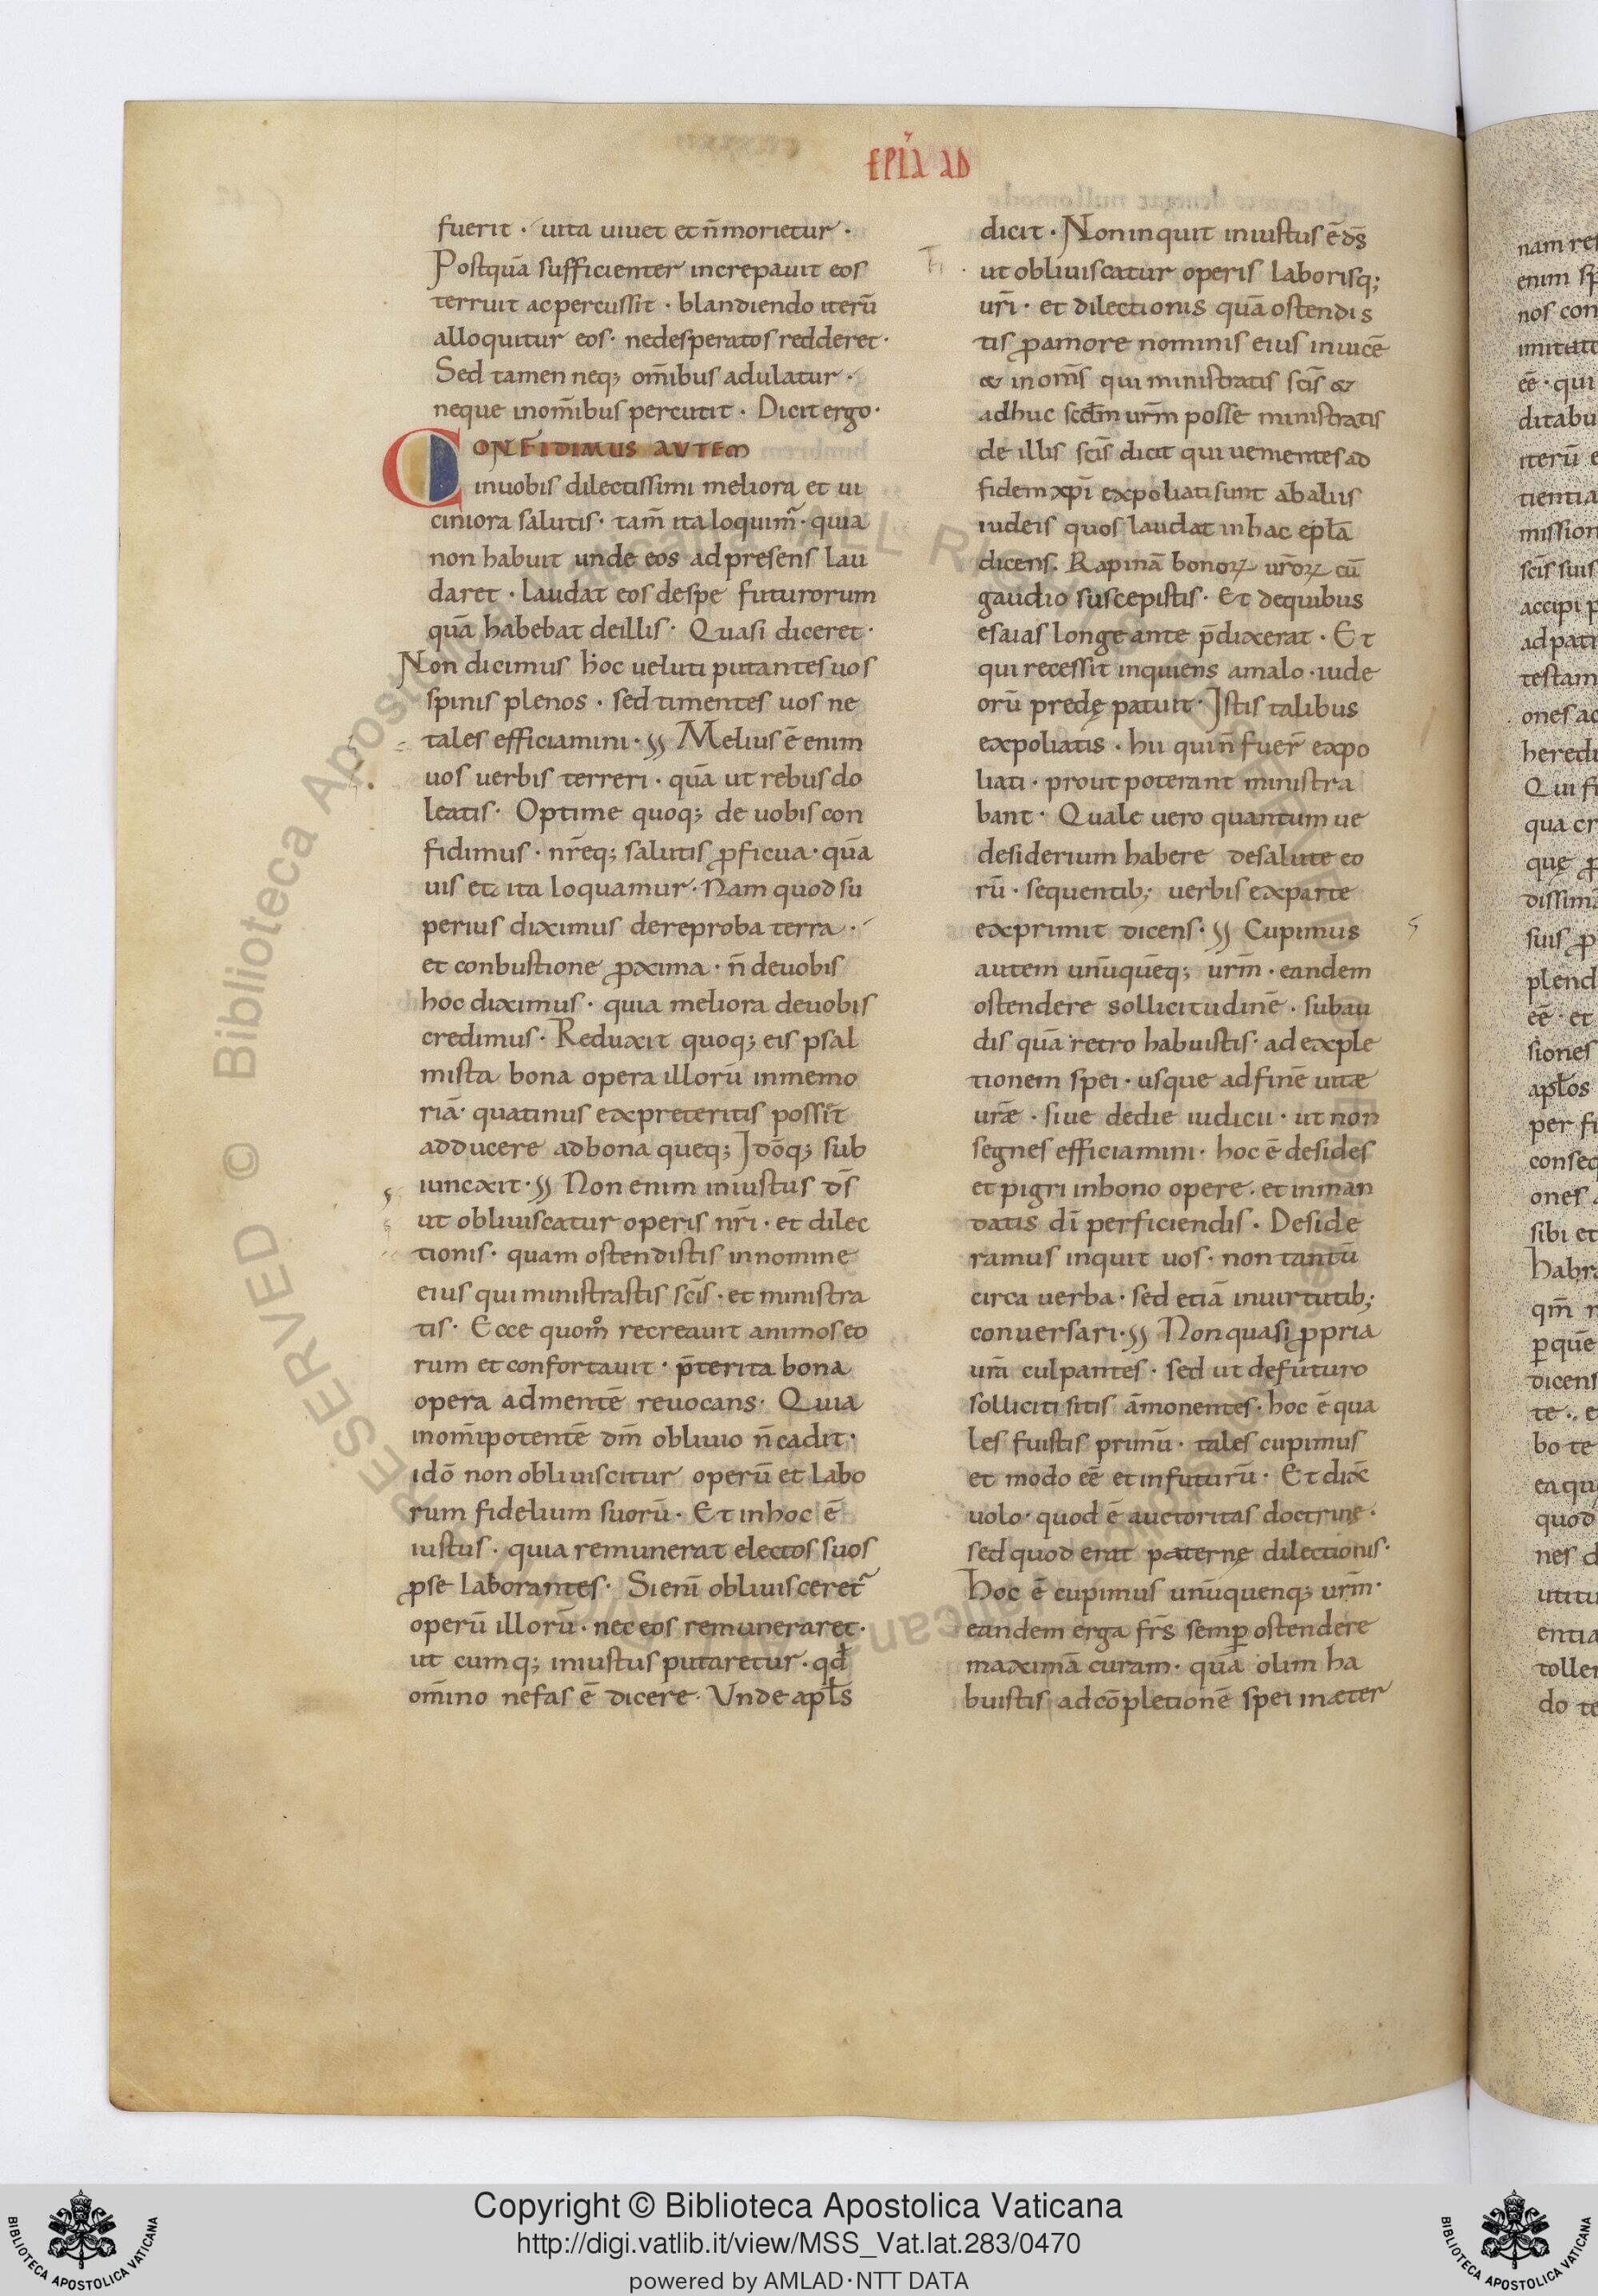 EPĪA AD
fuerit · uita uiuet et n̄ morietur ·
Postquā sufficienter increpauit eos
terruit ac percussit · blandiendo iterū
alloquitur eos · ne desperatos redderet ·
Sed tamen neq; om̄ibus adulatur ·
neque in om̄ibus percutit · Dicit ergo ·
CONFIDIMUS AUTEM
in uobis dilectissimi meliora et ui
ciniora salutis · tam̄ ita loquim̄ · quia
non habuit unde eos ad presens lau
daret · laudat eos de spe futurorum
quā habebat de illis · Quasi diceret ·
Non dicimus hoc ueluti putantes uos
spinis plenos · sed timentes uos ne
tales efficiamini · Melius ē enim
uos uerbis terreri · quā ut rebus do
leatis · Optime quoq; de uobis con
fidimus · nr̄eq; salutis ꝓficua · quā
uis et ita loquamur · Nam quod su
perius diximus de reproba terra ·
et conbustione ꝓxima · n̄ de uobis
hoc diximus · quia meliora de uobis
credimus · Reduxit quoq; eis psal
mista bona opera illorū in memo
riā · quatinus ex preteritis possit
adducere ad bona queq; Idōq; sub
iuncxit · Non enim iniustus ds̄
ut obliuiscatur operis nr̄i · et dilec
tionis · quam ostendistis in nomine
eius qui ministrastis sc̄is · et ministra
tis · Ecce quom̊ recreauit animos eo
rum et confortauit · p̄terita bona
opera ad mentē reuocans · Quia
in om̄ipotentē dm̄ obliuio n̄ cadit ·
idō non obliuiscitur operū et labo
rum fidelium suorū · Et in hoc ē
iustus · quia remunerat electos suos
ꝓ se laborantes · Si eni̅ obliuisceret̃
operū illorū · nec eos remuneraret ·
ut cumq; iniustus putaretur · qd̄
om̄ino nefas ē dicere · Vnde apl̄s
dicit · Non inquit iniustus ē ds̄
ut obliuiscatur operis laborisq;
ur̄i · et dilectionis quā ostendis
tis ꝓ amore nominis eius inuicē
& in om̄s qui ministratis sc̄is &
adhuc scd̄m ur̄m posse ministratis
de illis sc̄is dicit qui uementes ad
fidem xp̄i expoliati sunt ab aliis
iudeis quos laudat in hac epl̄a
dicens. Rapinā bonoꝝ ur̄oꝝ cū
gaudio suscepistis · Et de quibus
esaias longe ante p̄dixerat · Et
qui recessit inquiens a malo · iude
orū predę patuit · Istis talibus
expoliatis · hii qui n̄ fuer̄ expo
liati · prout poterant ministra
bant · Quale uero quantum ue
desiderium habere de salute eo
rū · sequentib; uerbis ex parte
exprimit dicens · Cupimus
autem unūquēq; ur̄m · eandem
ostendere sollicitudinē · subau
dis quā retro habuistis · ad exple
tionem spei · usque ad finē uitæ
ur̄æ · siue de die iudicii · ut non
segnes efficiamini · hoc ē desides
et pigri in bono opere · et in man
datis dī perficiendis · Deside
ramus inquit uos · non tantū
circa uerba · sed etiā in uirtutib;
conuersari · Non quasi ꝓpria
ur̄a culpantes · sed ut de futuro
solliciti sitis ām̄onentes · hoc ē qua
les fuistis primū · tales cupimus
et modo ēe et in futurū · Et dix̄
uolo · quod ē auctoritas doctrine ·
sed quod erat paternę dilectionis ·
Hoc ē cupimus unūquenq; ur̄m ·
eandem erga fr̄s semꝑ ostendere
maximā curam · quā olim ha
buistis ad cōpletionē spei in æter
Copyright © Biblioteca Apostolica Vaticana
http://digi.vatlib.it/view/MSS_Vat.lat.283/0470
powered by AMLAD·NTT DATA